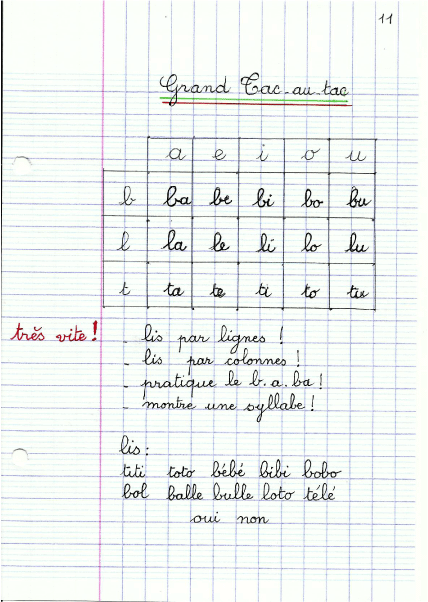 11
Grand Tac-au-tac
a e i o u
b ba be bi bo bu
l la le li lo lu
t ta te ti to tu
très vite ! - lis par lignes !
- lis par colonnes !
- pratique le b.a.ba !
- montre une syllabe !
lis :
titi toto bébé bibi bobo
bol balle bulle loto télé
oui non